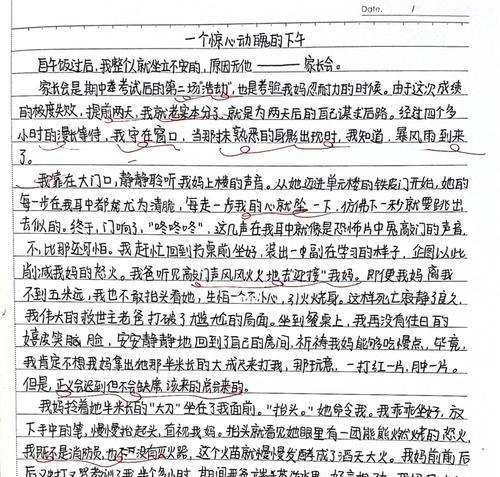 Date. /
一个惊心动魄的下午
自午饭过后,我整似就坐立不安的,原因无他——家长会。
家长会是期中考试后的第二场"浩劫",也是考验我妈忍耐力的时候。由于这次成绩
的极度失败,提前两天,我就老实本分了,就是为两天后的自己谋求后路。经过四个多
小时的漫长等待,我守在窗口,当那抹熟悉的身影出现时,我知道,暴风雨到来
了。
我靠在大门口,静静聆听我妈上楼的声音。从她迈进单元楼的铁门开始,她的
每一步在我耳中都尤为清脆,每走一步我的心就坠一下,仿佛下一秒就要跳出
去似的。终于,门响了,"咚咚咚",这几声在我耳中就像是恐怖片中展高门的声音,
不,比那还可怕。我赶忙回到书桌前坐好,装出一副在学习的样子,企图以此
削减我妈的怒火。我爸听见敲门声风风火火地去迎接"我妈。即便我妈离我
不到五米远,我也不敢抬头看她,生怕一个不小心,引火烧身。这样死亡寂静了良久,
我伟大的救世主老爸打破了尴尬的局面。坐到餐桌上,我再没有往日的
嬉皮笑脸,安安静静地回到了自己的房间,祈祷我妈能够吃慢点,毕竟,
我肯定不想我妈拿出她那半米长的大戒尺来打我,那玩意,一打红一片,肿一片。
但是,正义会迟到但不会缺席,该来的总会来的。
我妈拎着她半米长的"大刀"坐在了我面前。"抬头。"她命令我。我乖乖坐好,放
下手中的笔,慢慢抬起头,直视我妈。抬头就看见她眼里有一团能燃烧的怒火,
我既不是消防员,也不没有灭火器,这个火苗就慢慢发酵成了滔天大火。我妈前前后
后